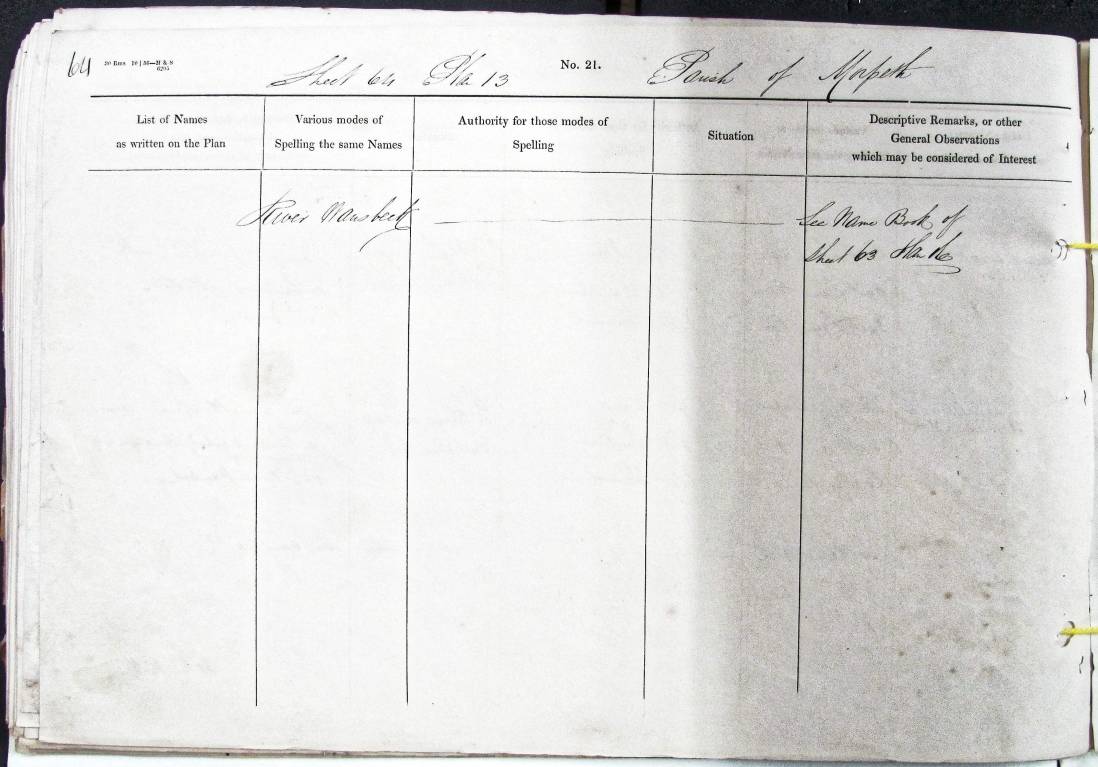 64
20 Rms 10 | 56—H & S
6205
Sheet 64 Pla 13
No. 21.
Parish of Morpeth
List of Names
as written on the Plan
Various modes of
Spelling the same Names
Authority for those modes of
Spelling
Situation
Descriptive Remarks, or other
General Observations
which may be considered of Interest
River Wansbeck
See Name Book of
Sheet 63 Plan 16